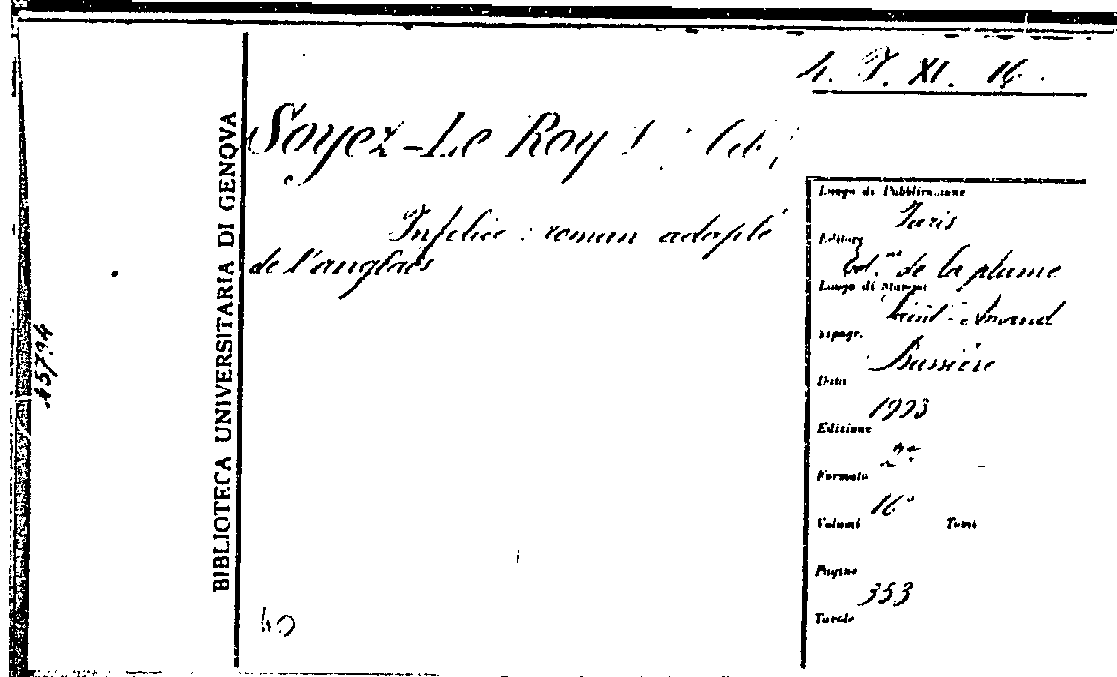 4. T. XI. 14.
BIBLIOTECA UNIVERSITARIA DI GENOVA
Soyez-Le Roy
Infelice : roman adapté
de l'anglais
Luogo di Pubblicazione
Paris
Editore
Ed.ns de la plume
Luogo di Stampa
Saint-Amand
Tipogr.
Bussière
Data
1923
Edizione
2ª
Formato
16°
Volumi Tomi
Pagine
353
Tavole
40